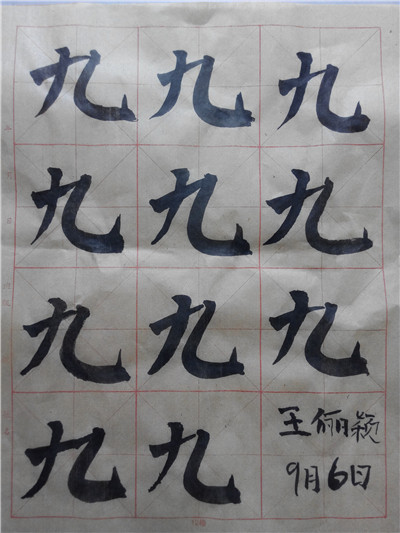 九九九
九九九
九九九
九九王俪颖
9月6日